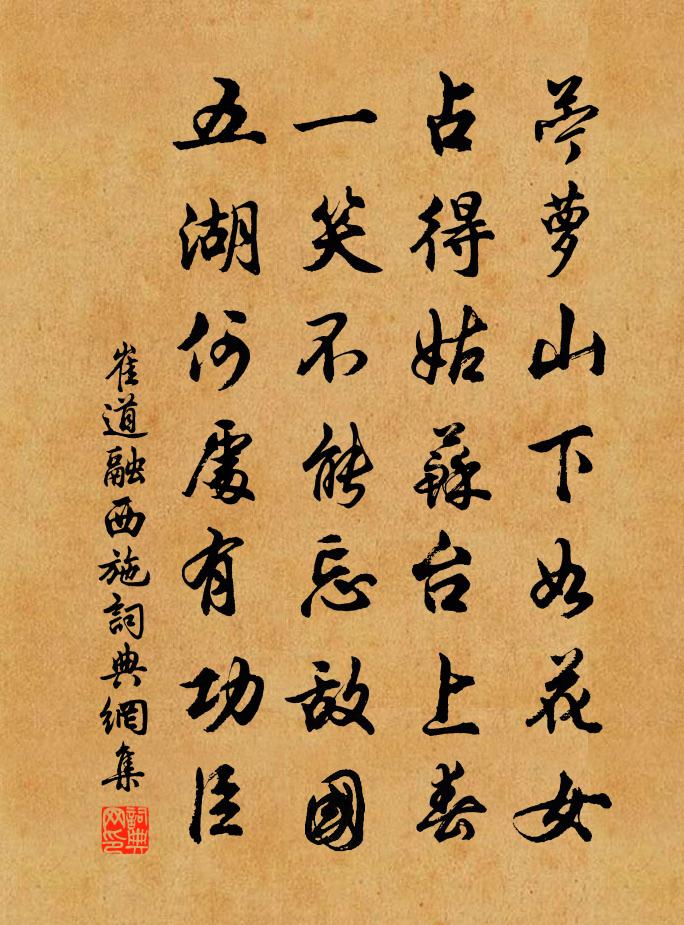 苧萝山下如花女
占得姑蘇台上春
一笑不能忘敌國
五湖何處有功臣
崔道融西施詞典網集
詞典网印